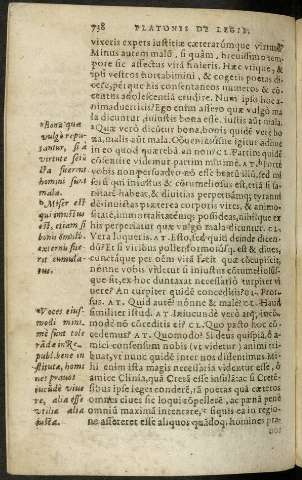 738 PLATONIS DE LEGIB.
vixeris expers iustitiæ cæterarúmque virtutū
Minus autem malū, si quàm breuissimo tem-
pore sic affectus vita fueris. Hæc vtique, &
ipsi vestros hortabimini, & cogetis poetas di-
cere, pérque his consentaneos numeros & cō-
centus adolescentiā erudire. Num ipsi hoc a-
nimaduertitis? Ego enim assero quę vulgò ma
la dicuntur, iniustis bona esse. iustis aūt mala.
Quæ verò dicūtur bona, bonis quidē verè bo
na, malis aūt mala. Conuenimúsne igitur adhuc
in eo quod quærebā an non? CL. Partim quidē
cōsentire videmur partim minimè. AT. Forte
vobis non persuadeo nō esse beatū illū, sed mi
serū qui iniustus & cōtumeliosus est, etiā si sa-
nitatē habeat, & diuitias perpetuámq; tyranni
dē
tatē, immortalitatémq; possideat, nihilque ex
his perpetiatur quæ vulgò mala dicuntur. CL.
Vera loqueris. AT. Esto, sed quid deinde dicen-
dū? Et si viribus polleat formosusq; sit & diues,
cunctáque per oēm vitā faciat quæ cōcupiscit,
nonne vobis videtur si iniustus cōtumeliosus-
que sit, ex hoc duntaxat necessariò turpiter vi
uere? An turpiter quidē conceditis? CL. Pror-
sus. AT. Quid autē? nōnne & malè? CL. Haud
similiter istud. AT. Iniucundè verò atq; incō-
modè nō cōceditis ei? CL. Quo pacto hoc cō-
cedemus? AT. Quomodo? Si deus quispiā, ô a-
mici consensum nobis (vt videtur) animi tri-
buat, vt nunc quidē inter nos dissentimus. Mi-
hi enim ista magis necessaria videntur esse, ô
amice Clinia, quā Cretā esse insulā: ac si Cretē-
sibus ipse leges conderē, tā poetas quā cæteros
omnes ciues sic loqui cōpellerē, ac pœna penè
omniū maxima interdicerē, siquis ea in regio-
ne assereret esse aliquos quādoq; homines pra-
Bona quæ
vulgò repu-
tantur, si à
virtute seiū
cta fuerint
homini sunt
mala.
Miser est
qui iniustus
est, etiam si
bonis omnib.
externis fue
rit cumula-
tus.
Voces eius-
modi mini-
mè sunt tole
rādæ in Re-
publ. bene in
stituta, homi
nes prauos
iucūdè viue
re, alia esse
vtilia alia
iusta.